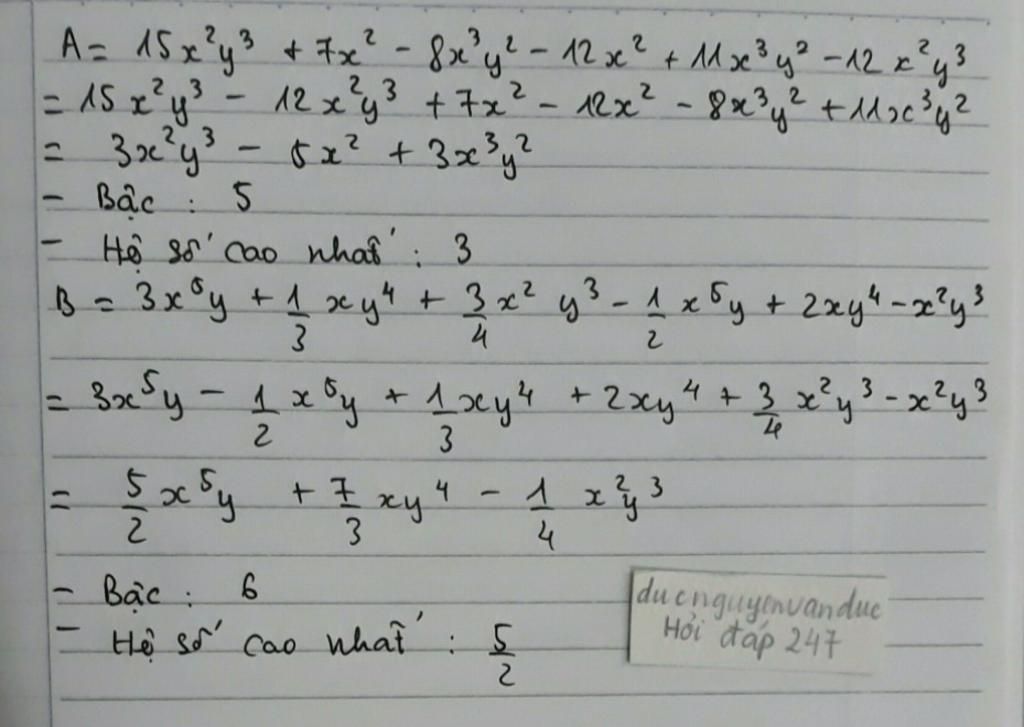 A = 15x²y³ + 7x² - 8x³y² - 12x² + 11x³y² - 12x²y³
= 15x²y³ - 12x²y³ + 7x² - 12x² - 8x³y² + 11x³y²
= 3x²y³ - 5x² + 3x³y²
- Bậc : 5
- Hệ số cao nhất : 3
B = 3x⁵y + 1/3 xy⁴ + 3/4 x² y³ - 1/2 x⁵y + 2xy⁴ - x²y³
= 3x⁵y - 1/2 x⁵y + 1/3 xy⁴ + 2xy⁴ + 3/4 x²y³ - x²y³
= 5/2 x⁵y + 7/3 xy⁴ - 1/4 x²y³
- Bậc : 6
- Hệ số cao nhất : 5/2
ducnguyenvanduc
Hỏi đáp 247